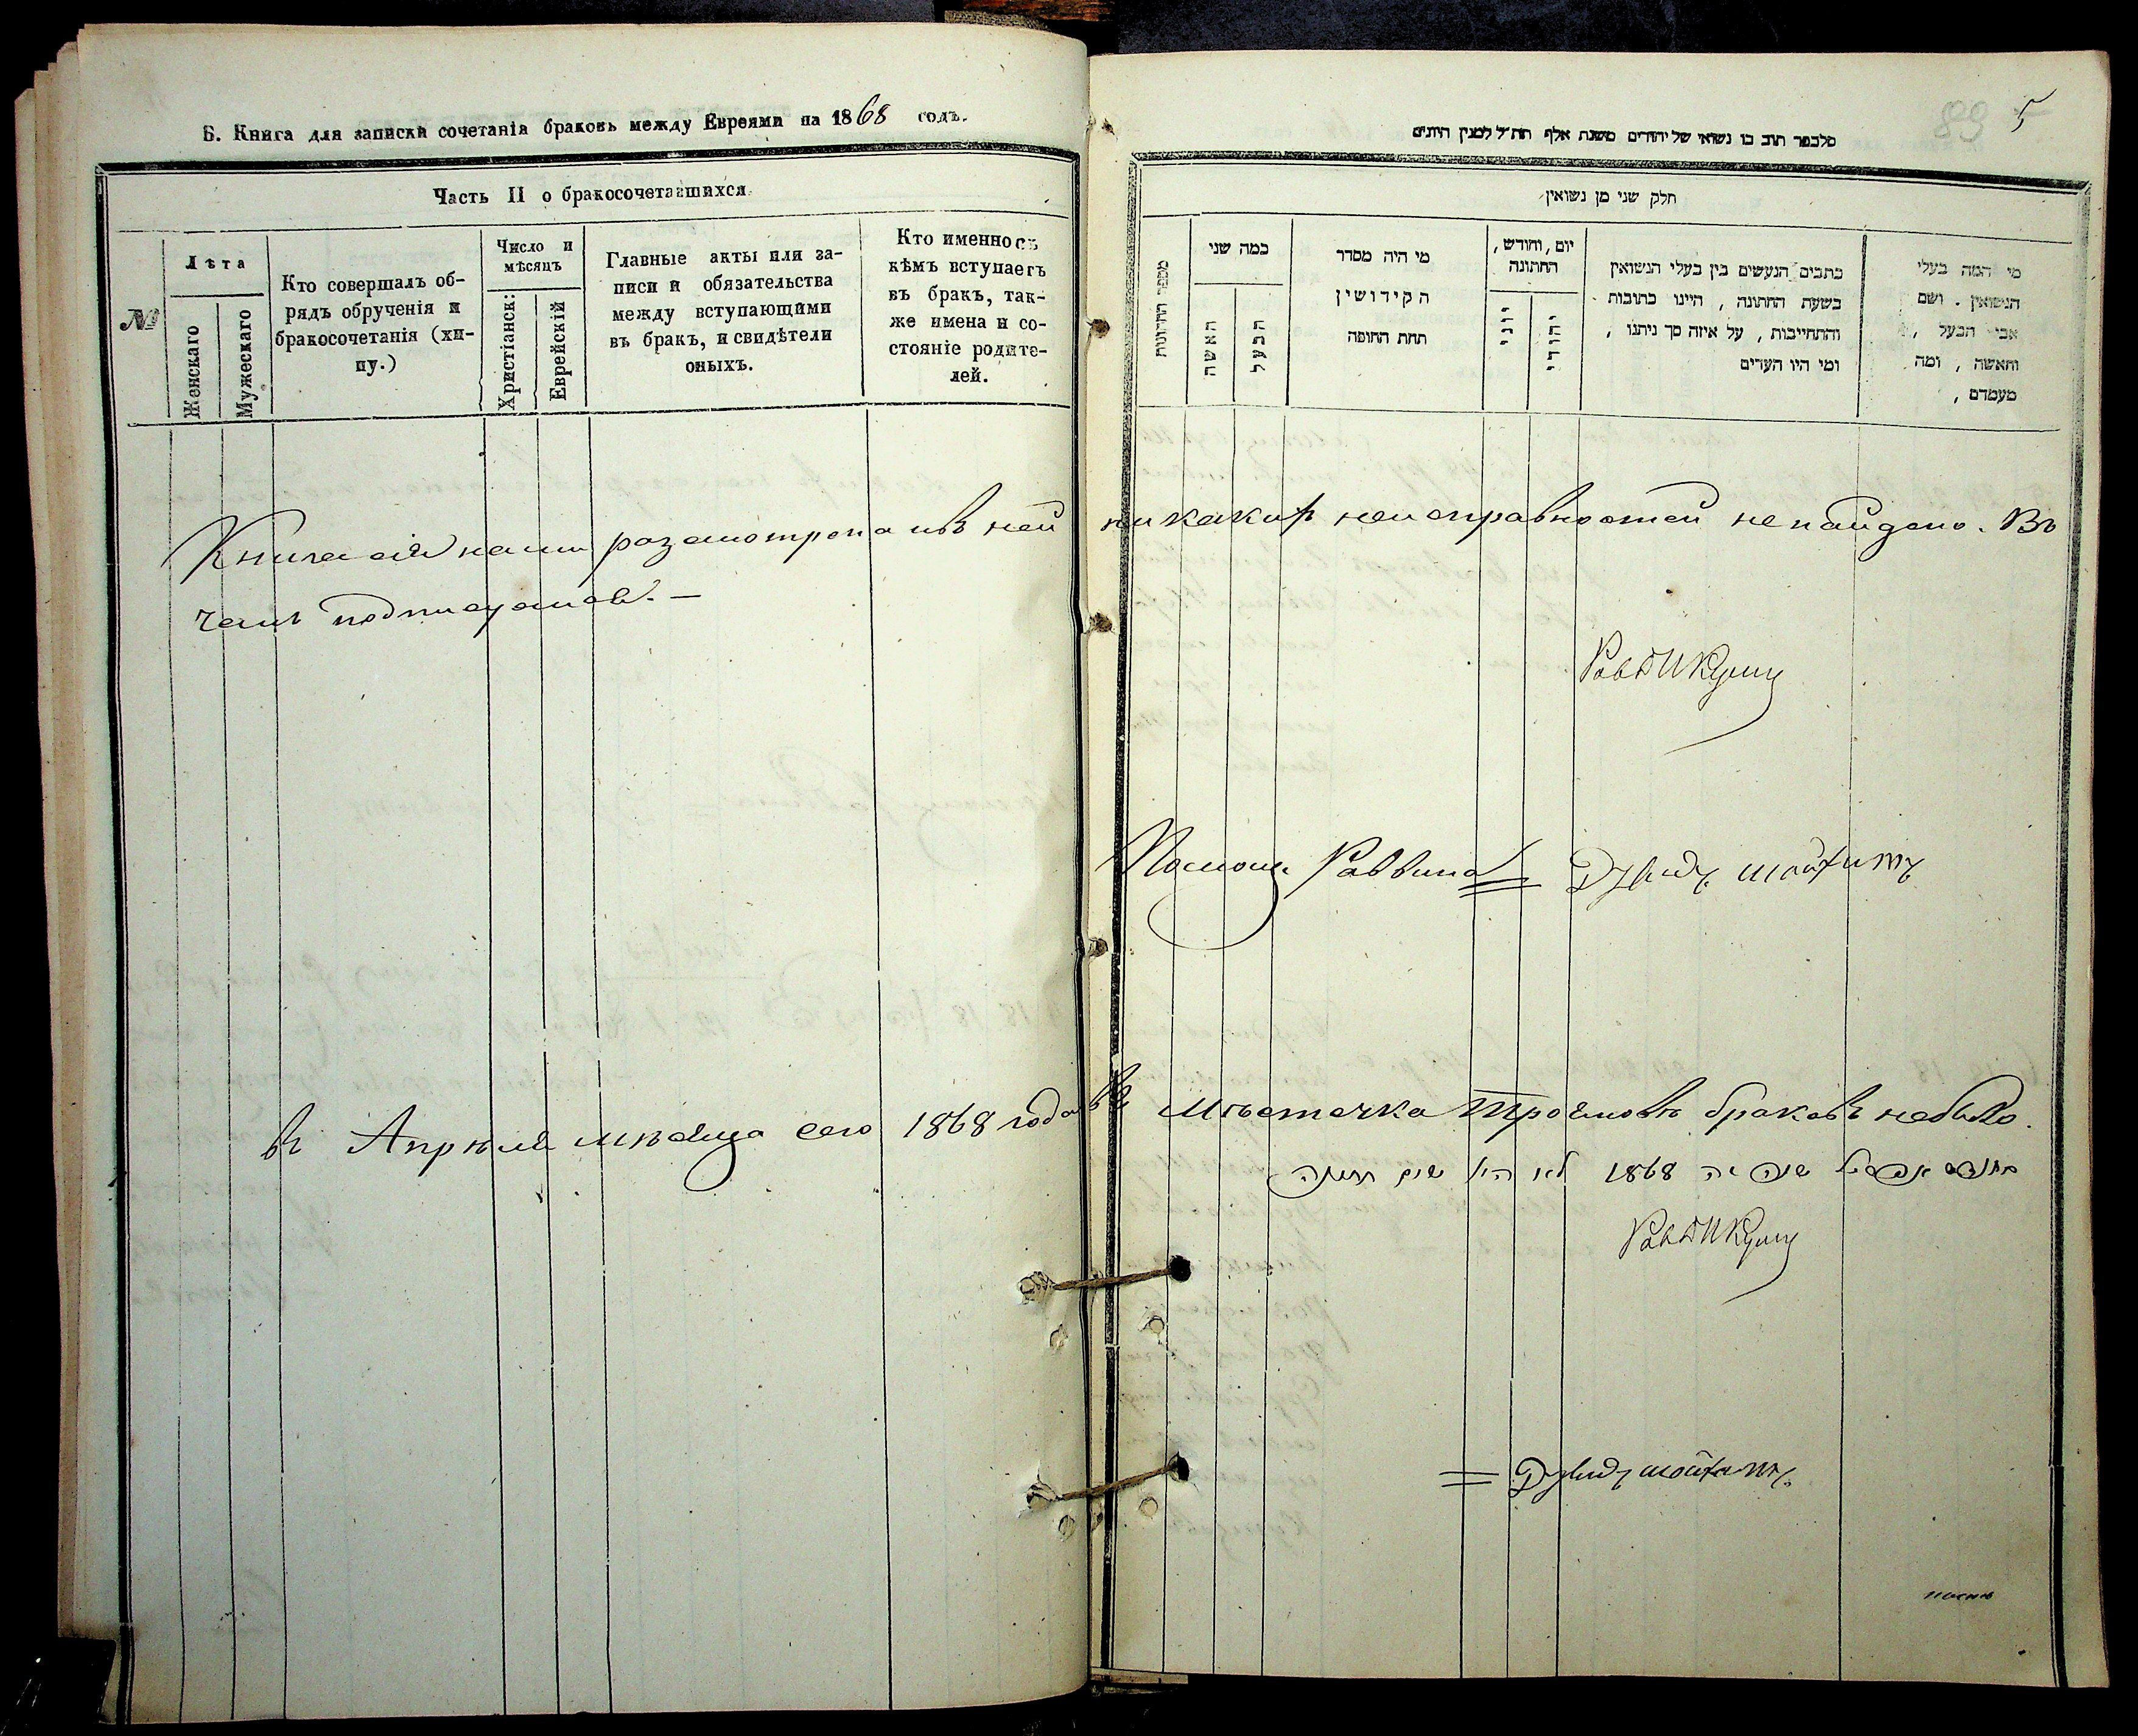 Б. Книга для записки сочетанія браковъ между Евреями на 1868 годъ.
Часть II о бракосочетавшихся
№
Лѣта
Женскаго
Мужескаго
Кто совершалъ об-
рядъ обрученія и
бракосочетанія (хи-
пу.)
Число и
мѣсяцъ
Христіанск:
Еврейскій
Главные акты или за-
писи и обязательства
между вступающими
въ бракъ, и свидѣтели
оныхъ.
Кто именно съ
кѣмъ вступаетъ
въ бракъ, так-
же имена и со-
стояніе родите-
лей.
89 5
חלק שני מן נשואין
מספר החתונות
כמה שני
האשה
הבעל
מי היה מסדר
הקידושין
תחת החופה
יום, וחודש,
החתונה
יוני
יהודי
כתבים הנעשים בין בעלי הנשואין
בשעת החתונה, היינו כתובות
והתחייבות, על איזה סך ניתנו,
ומי היו העדים
מי המה בעלי
הנשואין. ושם
אבי הבעל,
והאשה, ומה
מעמדם,
Книга сія нами разсмотрена и въ ней никакихъ неисправностей не найдено. Въ
чемъ подписуемся. —
Помощ. Раввина = Дувидъ
въ Апрѣля мѣсяца сего 1868 года въ Мѣстечка Трояновъ браковъ небыло.
1868
= Дувидъ